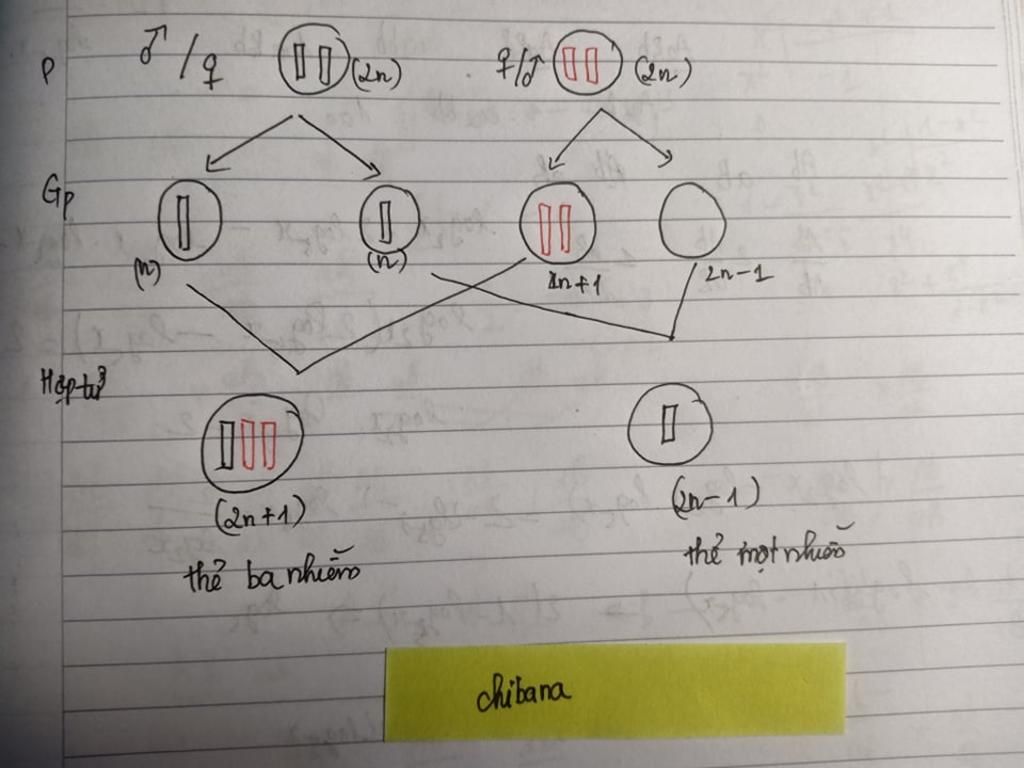 P ♂/♀ (2n) ♀/♂ (2n)
Gp
(n) (n) 1n+1 2n-1
Hợp tử
(2n+1) (2n-1)
thể ba nhiễm thể một nhiễm
chibana